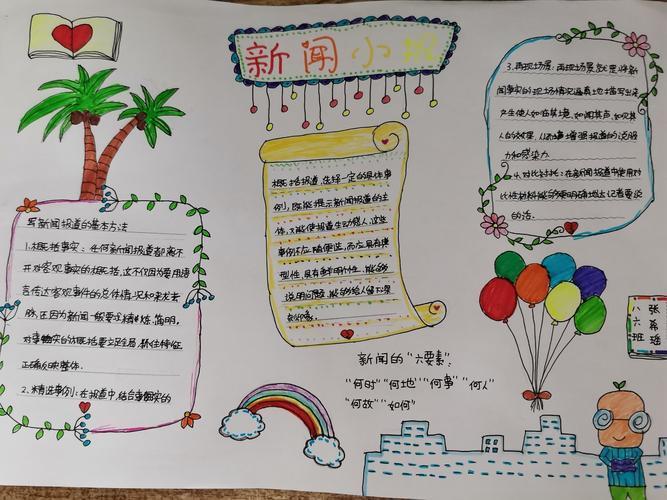 新闻小报
写新闻报道的基本方法
1.概括事实：任何新闻报道都离不
开对客观事实的概括，这不仅因为要用语
言传达客观事件的总体情况和来龙去
脉，还因为新闻一般要求精炼、简明，
对事物实的概括要交全局，抓住特征，
正确反映整体。
2.精选事例：在报道中，结合事物实的
概括报道，选择一定的具体事
例，既能揭示新闻报道的主
体，又能使报道生动感人，这些
事例不应随便选，而应具有典
型性，具有鲜明个性，能够
说明问题，能够给人留下深
刻印象。
3.再现场景：再现场景就是将新
闻事实的现场情况逼真地描写出来
产生使人如临其境，如闻其声，如见其
人的效果，从而增强报道的说服
力和感染力
4.对比衬托：在新闻报道中使用对
比性材料能够更明确地让记者要说
的话。
新闻的“六要素”：
“何时”“何地”“何事”“何人”
“何故”“如何”
八六班
张
瑶